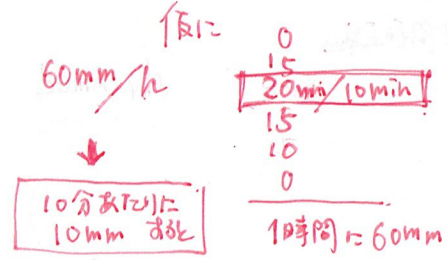 60mm/h
10分あたりに
10mm すると
仮に
0
15
20mm/10min
15
10
0
1時間に60mm